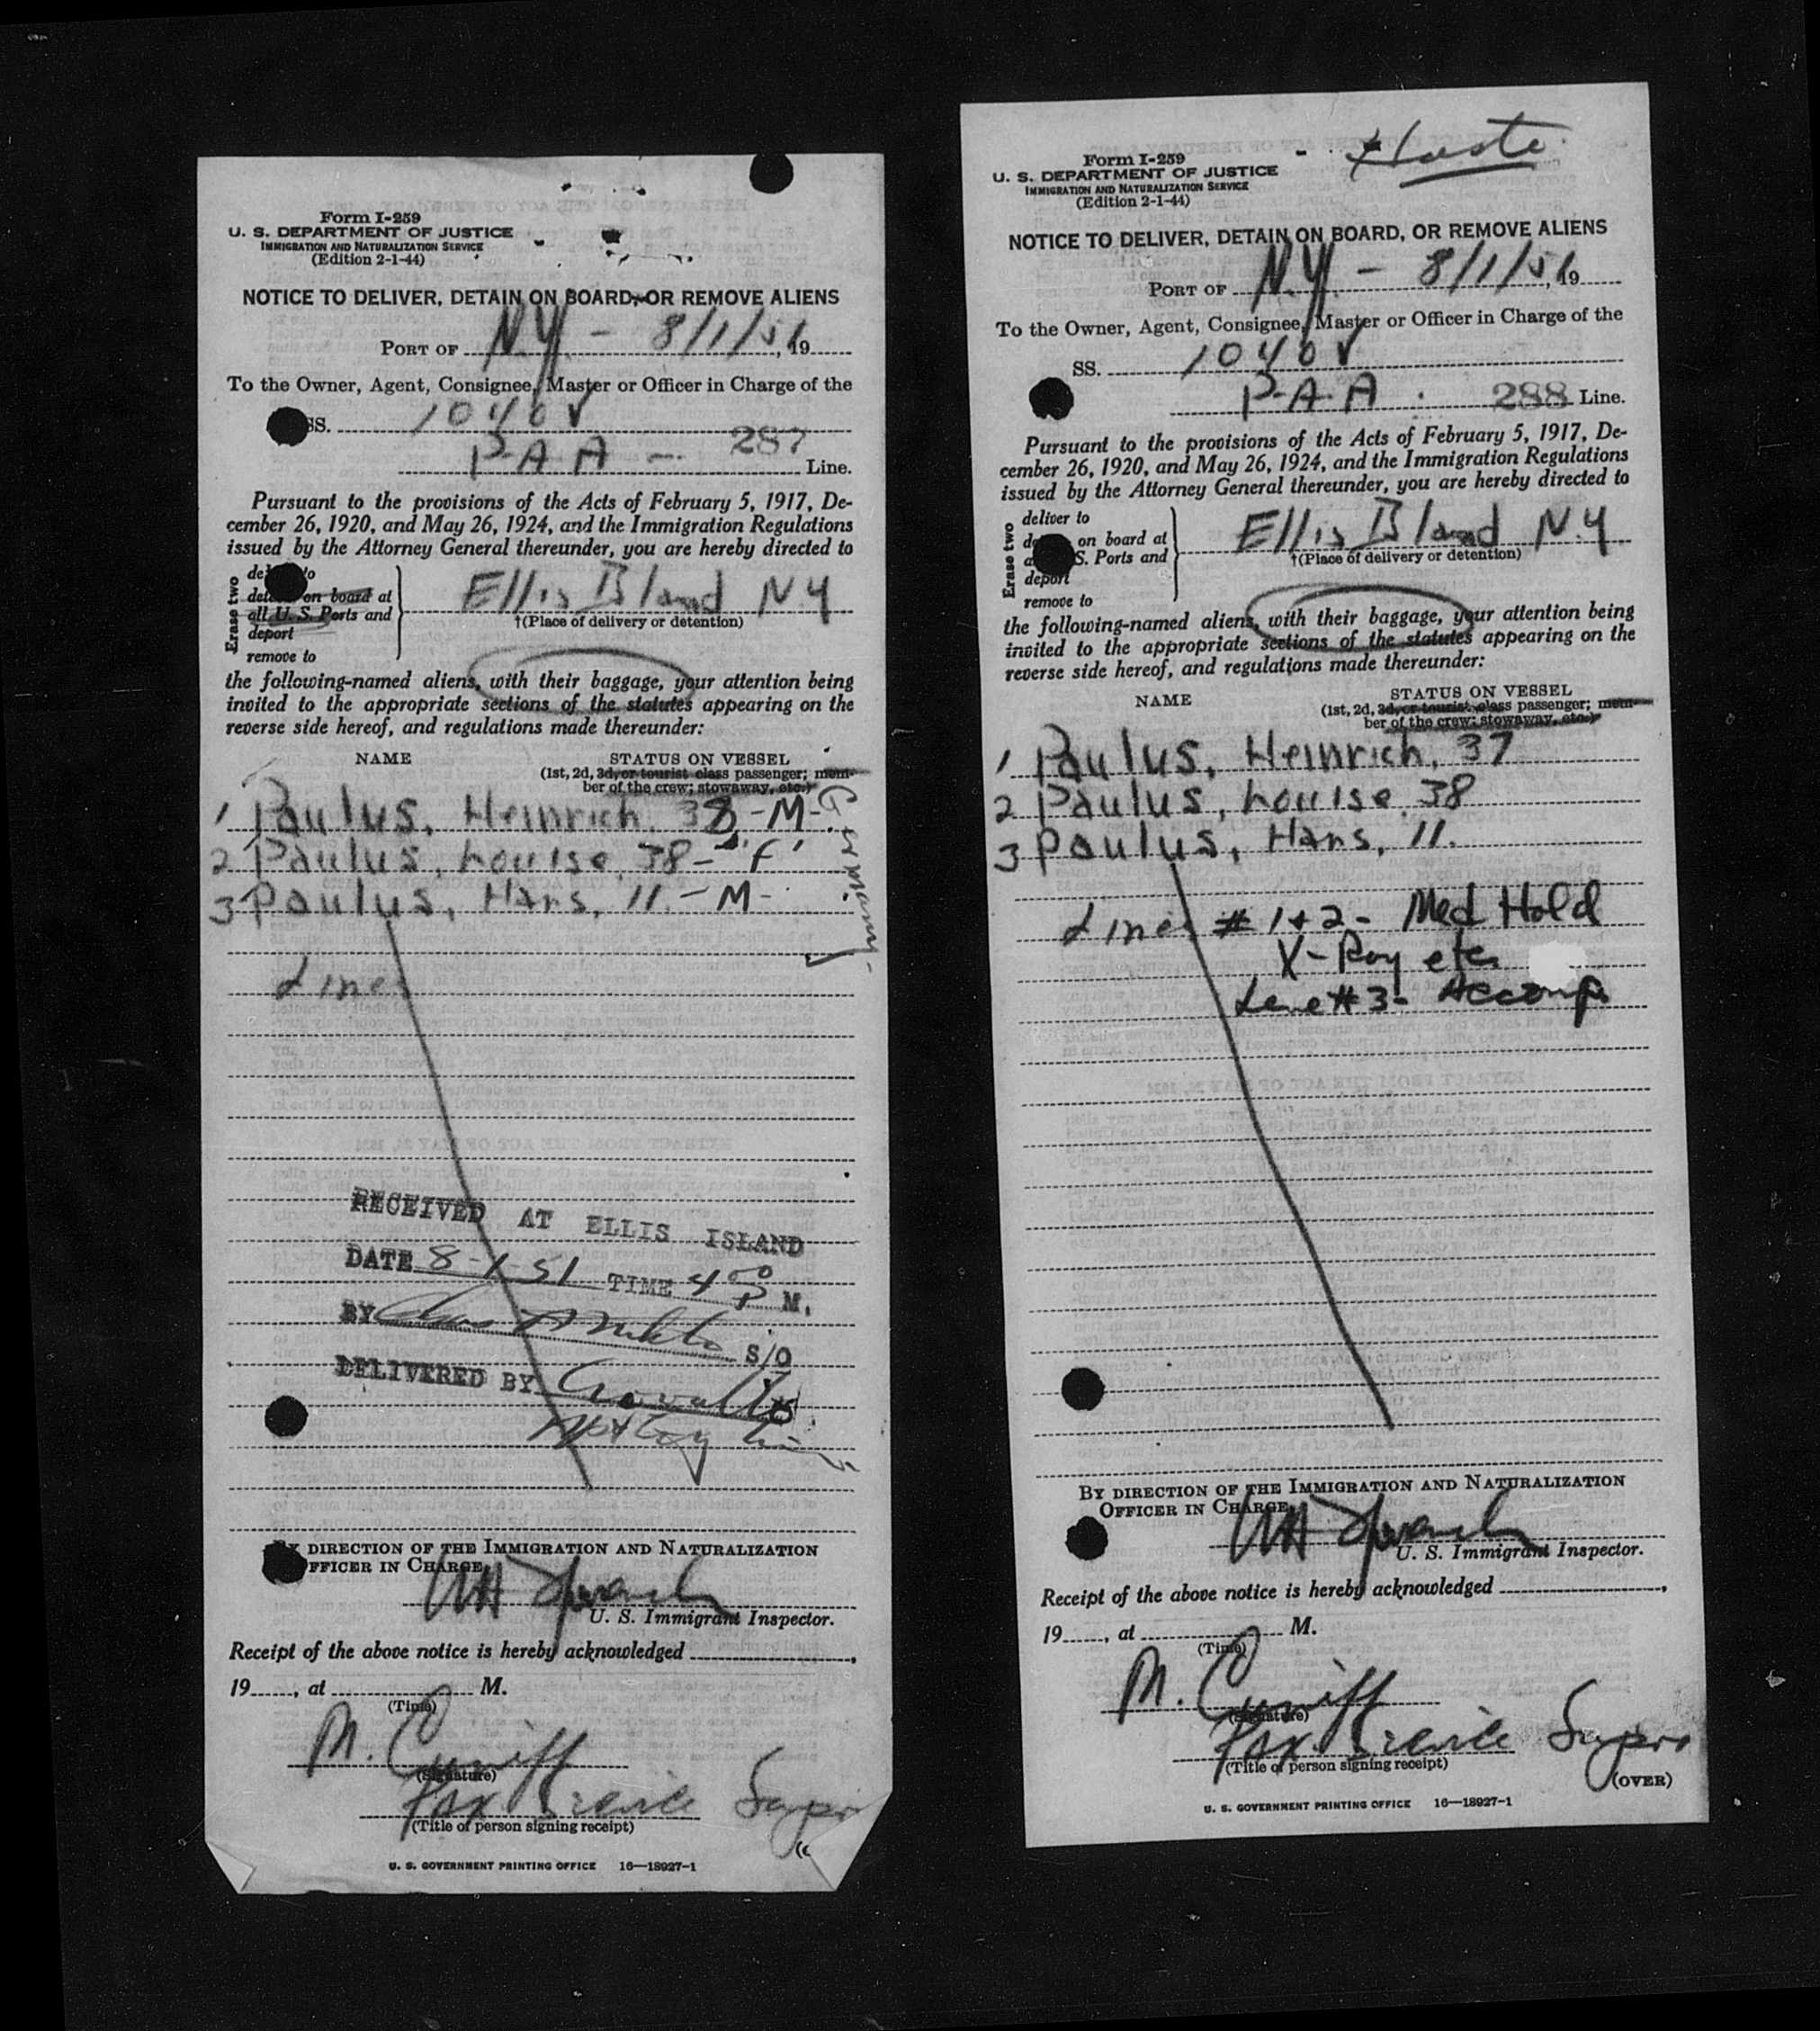 Form I-259
U. S. DEPARTMENT OF JUSTICE
IMMIGRATION AND NATURALIZATION SERVICE
(Edition 2-1-44)
NOTICE TO DELIVER, DETAIN ON BOARD, OR REMOVE ALIENS
PORT OF N.Y. - 8/1/51, 19
To the Owner, Agent, Consignee, Master or Officer in Charge of the
SS. 1040 V
PAA - 287 Line.
Pursuant to the provisions of the Acts of February 5, 1917, De-
cember 26, 1920, and May 26, 1924, and the Immigration Regulations
issued by the Attorney General thereunder, you are hereby directed to
Erase two
on board at
all U. S. Ports and
deport
remove to
Ellis Island N.Y
†(Place of delivery or detention)
the following-named aliens, with their baggage, your attention being
invited to the appropriate sections of the statutes appearing on the
reverse side hereof, and regulations made thereunder:
NAME STATUS ON VESSEL
(1st, 2d, 3d, or tourist class passenger; mem-
ber of the crew; stowaway, etc.)
1 Paulus, Heinrich, 38 - M -
2 Paulus, Louise, 38 - "F"
3 Paulus, Hans, 11. - M -
Germany
Lines
RECEIVED AT ELLIS ISLAND
DATE 8-1-51 TIME 4 00 P M.
BY S/O
DELIVERED BY
BY DIRECTION OF THE IMMIGRATION AND NATURALIZATION
OFFICER IN CHARGE
U. S. Immigrant Inspector.
Receipt of the above notice is hereby acknowledged
19, at M.
(Time)
M. Cuniff
(Signature)
Supr
(Title of person signing receipt)
U. S. GOVERNMENT PRINTING OFFICE 16—18927-1
Form I-259
U. S. DEPARTMENT OF JUSTICE
IMMIGRATION AND NATURALIZATION SERVICE
(Edition 2-1-44)
NOTICE TO DELIVER, DETAIN ON BOARD, OR REMOVE ALIENS
PORT OF N.Y. - 8/1/51, 19
To the Owner, Agent, Consignee, Master or Officer in Charge of the
SS. 1040 V
P.A.A. 288 Line.
Pursuant to the provisions of the Acts of February 5, 1917, De-
cember 26, 1920, and May 26, 1924, and the Immigration Regulations
issued by the Attorney General thereunder, you are hereby directed to
Erase two
deliver to
on board at
S. Ports and
deport
remove to
Ellis Island N.Y
†(Place of delivery or detention)
the following-named aliens, with their baggage, your attention being
invited to the appropriate sections of the statutes appearing on the
reverse side hereof, and regulations made thereunder:
NAME STATUS ON VESSEL
(1st, 2d, 3d, or tourist class passenger; mem-
ber of the crew; stowaway, etc.)
1 Paulus, Heinrich, 37
2 Paulus, Louise, 38
3 Paulus, Hans, 11.
Lines # 1 + 2 - Med Hold
X-Ray etc
Line # 3 - Accomp.
BY DIRECTION OF THE IMMIGRATION AND NATURALIZATION
OFFICER IN CHARGE
U. S. Immigrant Inspector.
Receipt of the above notice is hereby acknowledged
19, at M.
(Time)
M. Cuniff
(Signature)
Supr
(Title of person signing receipt)
(OVER)
U. S. GOVERNMENT PRINTING OFFICE 16—18927-1